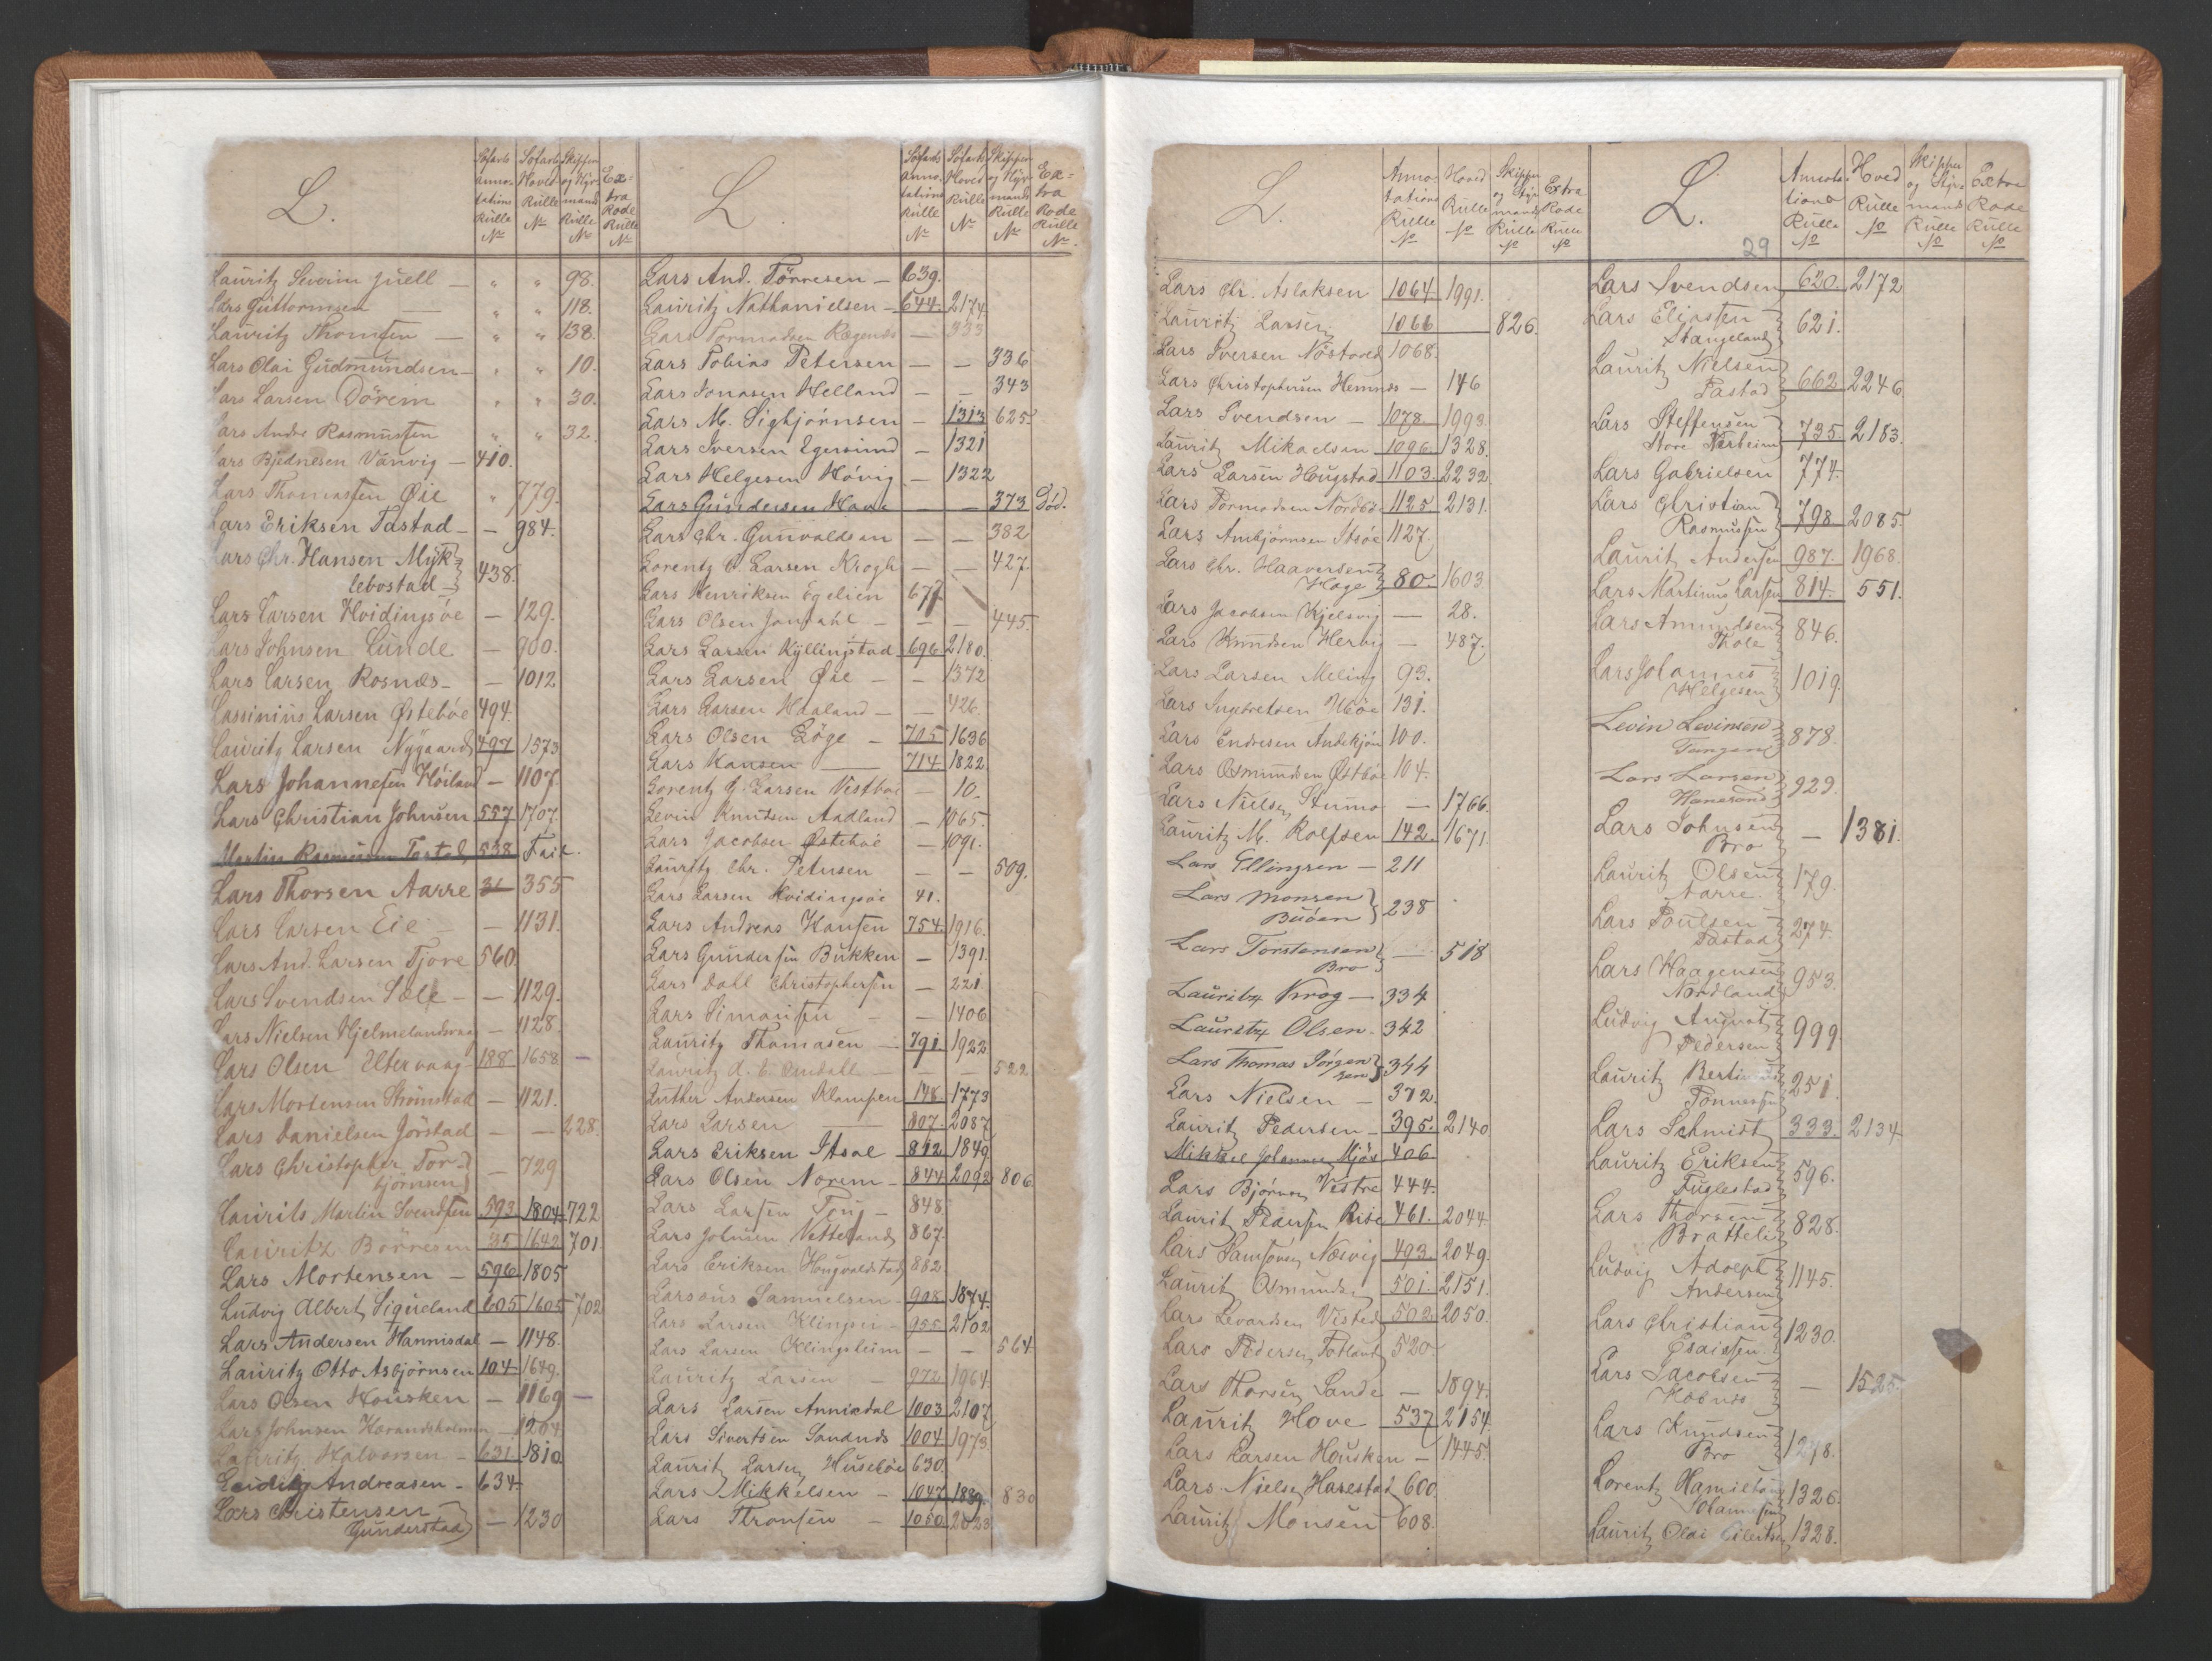 L.
Søfarts Annotations Rulle No
Søfarts Hoved Rulle No
Skipper og Styrmands Rulle No
Extra Rode Rulle No
Lauritz Severin Juell — " " 98.
Lars Guttormsen — " " 118.
Lauritz Thomsen — " " 138.
Lars Olai Gudmundsen — " " 10.
Lars Larsen Dörein " " 30.
Lars Andre Rasmussen " " 32.
Lars Bjednesen Vanvig — 410.
Lars Thomassen Øie " 779.
Lars Eriksen Tastad — — 984.
Lars Chr. Hansen Myk=
lebostad } 438.
Lars Larsen Hvidingsöe — 129.
Lars Johnsen Lunde — 900.
Lars Larsen Rosnæs — — 1012
Lassinius Larsen Østeböe 494.
Lauritz Larsen Nygaard 497 1573
Lars Johannesen Höiland — 1107.
Lars Christian Johnsen 557 1707.
Martin Rasmussen Tastad 538 Feil.
Lars Thorsen Aarre 31 355
Lars Larsen Eie — 1131.
Lars And. Larsen Tjore 560.
Lars Svendsen Sæle — — 1129.
Lars Nielsen Hjelmelandsvaag — 1128.
Lars Olsen Eltervaag 188 1658. —
Lars Mortensen Strömstad — 1121.
Lars Danielsen Jörstad — — 228.
Lars Christopher Tor=
björnsen } — 729
Laurits Martin Svendsen 593 1804 722
Lauritz Börresen 35 1642 701.
Lars Mortensen — 596 1805
Ludvig Albert Sigueland 605 1605 702
Lars Andersen Hannisdal — 1148.
Lauritz Otto Asbjörnsen 104 1649.
Lars Olsen Housken — 1169 —
Lars Johnsen — 1204
Lauritz Halvorsen — 631. 1810
Ludvig Andreasen — 634.
Lars Christensen
Gunderstad } — 1230
L.
Søfarts Annotations Rulle No
Søfarts Hoved Rulle No
Skipper og Styrmands Rulle No
Extra Rode Rulle No.
Lars And. Törresen — 639.
Lauritz Nathanielsen — 644 2174.
Lars Tormodsen — 333
Lars Tobias Petersen — — 336
Lars Jonasen Helland — — 343
Lars M. Sigbjörnsen — 1313 625.
Lars Iversen Egersund — 1321
Lars Helgesen Hövig — 1322
Lars Gundersen Hove — — 373 Död.
Lars Chr. Gunvaldsen — — 382
Lorentz C. Larsen Krogh — — 427.
Lars Henriksen Egelien 677
Lars Olsen Jondahl — — — 445.
Lars Larsen Kyllingstad 696 2180.
Lars Larsen Øie — — 1372
Lars Larsen Haaland — — 426.
Lars Olsen Löge — 705 1636
Lars Hansen — 714 1822
Lorentz G. Larsen Vestboe — 10.
Levin Knudsen Aadland — 1065.
Lars Jacobsen Østeböe — 1091.
Lauritz Chr. Petersen — — 509.
Lars Larsen Hvidingsöe 41.
Lars Andreas Hansen 754 1916.
Lars Gundersen Bukken — 1391
Lars Dahl Christophersen — 221
Lars Simonsen — — 1406
Lauritz Thomasen — 791 1922
Lauritz A. C. Omdahl — — — 522
Luther Andersen Klampen 148 1773
Lars Larsen — 807. 2087
Lars Eriksen Itsöe — 812 1849.
Lars Olsen Norem — 844 2092 806
Lars Larsen Teig — 848.
Lars Johnsen Netteland 867.
Lars Eriksen Hougvaldstad 882
Larsæus Samuelsen — 908 1874.
Lars Larsen Klingsei — 955 2102
Lars Larsen Klingsheim — — 564
Lauritz Larsen — 972 1964.
Lars Larsen Annixdal 1003 2107
Lars Sivertsen Sandnæs 1004 1973.
Lauritz Larsen Huseböe 630.
Lars Mikkelsen — 1047 1889. 830
Lars Thronsen — 1050 2023
L.
Annotations Rulle No
Hoved Rulle No
Skipper og Styrmands Rulle No
Extra Rode Rulle No
Lars Chr. Aslaksen 1064 1991.
Lauritz Larsen 1066 826.
Lars Iversen Nöstvold 1068.
Lars Christophersen Hemnæs — 146
Lars Svendsen — 1078. 1993.
Lauritz Mikaelsen 1096 1328.
Lars Larsen Hougstad 1103 2232
Lars Tormodsen Nordbö 1125 2131.
Lars Ambjörnsen Itsöe 1127.
Lars Chr. Haaversen
Hage } 80 1603
Lars Jacobsen Kjelsvig — 28.
Lars Knudsen Hervig — 487.
Lars Larsen Meling 93.
Lars Ingbretsen Utböe 131.
Lars Endresen Andekjön 100.
Lars Osmundsen Østböe 104.
Lars Nielsen Stumo — 1766.
Lauritz M. Rolfsen 142. 1671.
Lars Ellingsen — 211
Lars Monsen
Buöen } 238
Lars Torstensen
Bro } — 518
Lauritz Krog — 334
Lauritz Olsen. 342
Lars Thomas Jörgen
sen } 344
Lars Nielsen — 372.
Lauritz Pedersen — 395. 2140
Mikkel Johannes Mjös 406.
Lars Björnsen Vestre 444.
Lauritz Pedersen Riise 461. 2044
Lars Samsonsen Næsvig 493. 2049.
Lauritz Osmundsen 501. 2151.
Lars Levardsen Visted 502. 2050.
Lars Pedersen Fotland 520.
Lars Thorsen Sande — 1894.
Lauritz Hove 537 2154
Lars Larsen Housken — 1445.
Lars Nielsen Harestad 600.
Lauritz Monsen 608.
L.
29
Annotations Rulle No
Hoved Rulle No
Skipper og Styrmands Rulle No
Extra Rode Rulle No
Lars Svendsen 620. 2172
Lars Eliassen
Stangeland } 621.
Lauritz Nielsen
Tastad } 662 2246
Lars Steffensen
Store Nærheim } 735 2183.
Lars Gabrielsen 774.
Lars Christian
Rasmussen } 798 2085.
Lauritz Andersen 987. 1968.
Lars Martinus Larsen 814. 551.
Lars Amundsen
Hole } 846.
Lars Johannes
Helgesen } 1019.
Levin Levinsen
Tangen } 878.
Lars Larsen
Hanesand } 929.
Lars Johnsen
Bro } — 1381.
Lauritz Olsen
Aarre. } 179.
Lars Poulsen
Tastad } 274.
Lars Haagensen
Nordland } 953.
Ludvig August
Pedersen } 999
Lauritz Bertinus
Tönnessen } 251
Lars Schmidt 333. 2134
Lauritz Eriksen
Fuglestad } 596.
Lars Thorsen
Brattelie } 828.
Ludvig Adolph
Andersen } 1145.
Lars Christian
Esaiasen. } 1230.
Lars Jacobsen
Höbnæs } — 1525.
Lars Knudsen
Bro } 1298.
Lorentz Hamilton
Johannesen } 1326.
Lauritz Olai Eilertsen 1328.